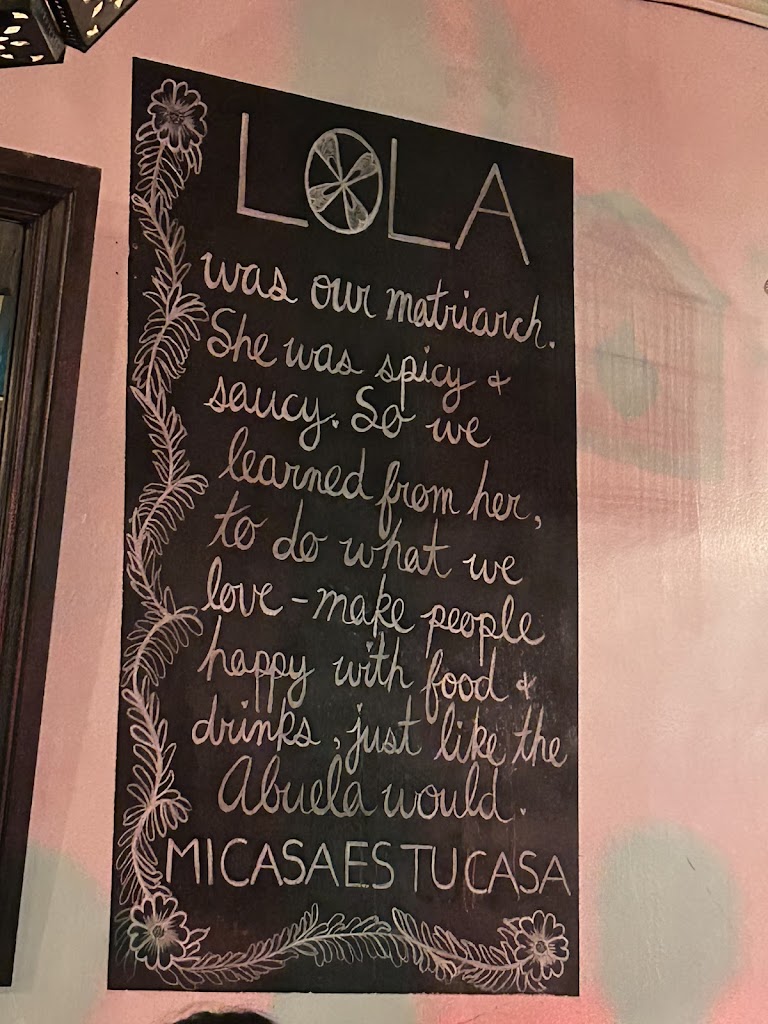 LOLA
was our matriarch.
She was spicy &
saucy. So we
learned from her,
to do what we
love - make people
happy with food &
drinks, just like the
Abuela would.
MI CASA ES TU CASA